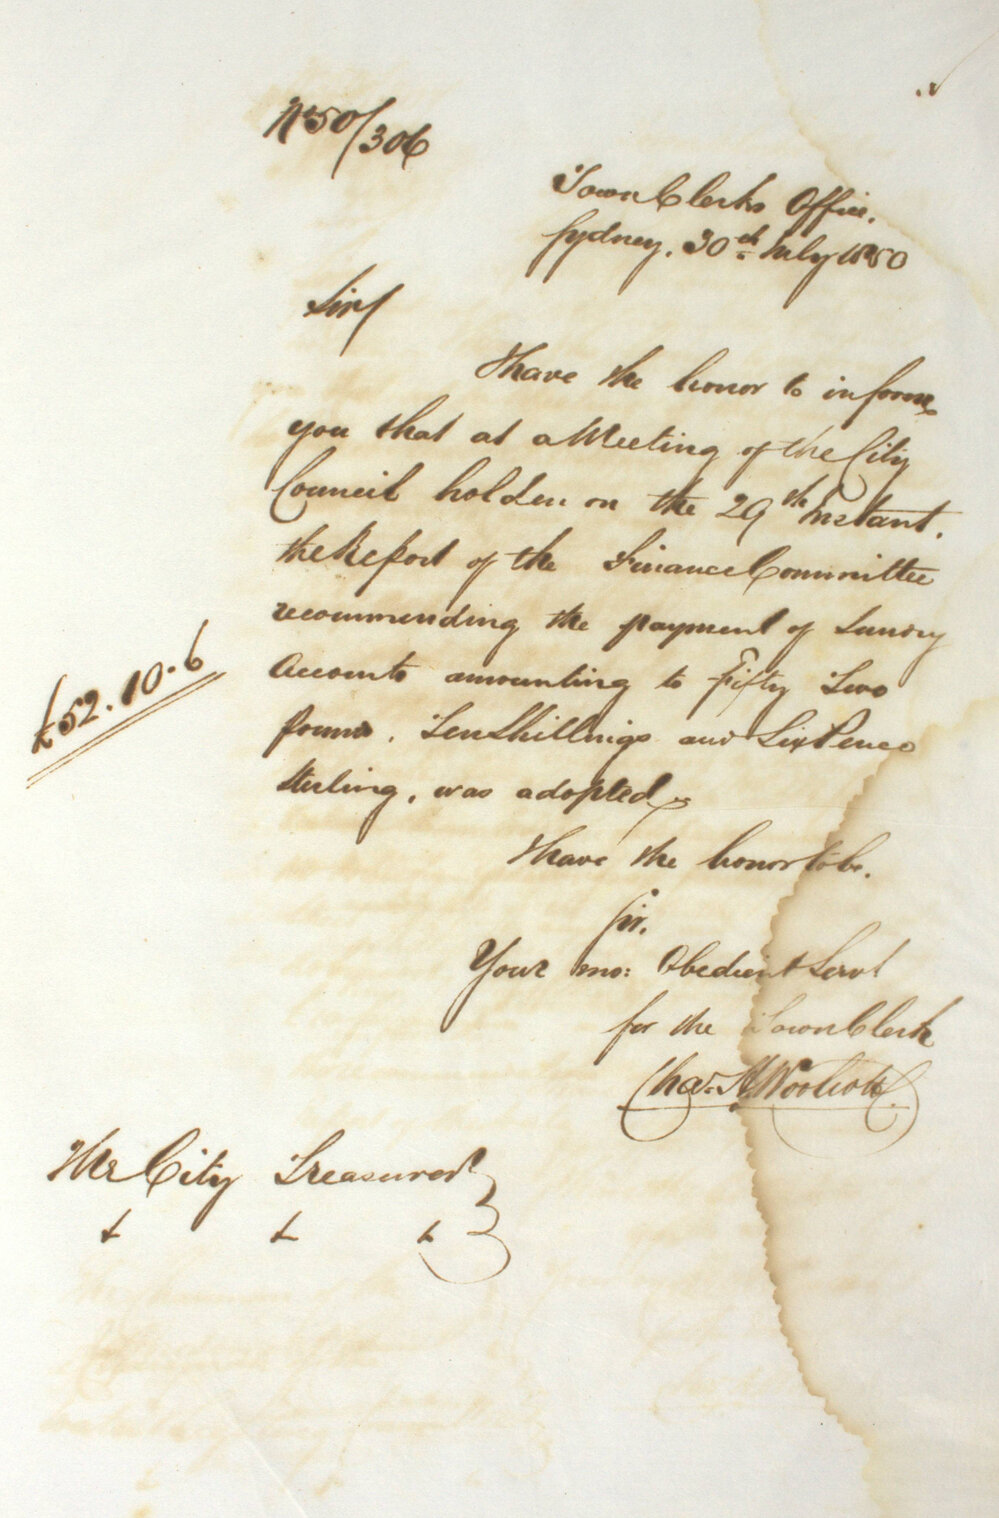 No 50/306
Town Clerks Office.
Sydney. 30th July 1850
Sir/
I have the honor to inform
you that at a Meeting of the City
Council holden on the 29th Instant.
the Report of the Finance Committee
recommending the payment of Sundry
Accounts amounting to Fifty Two
pounds. Ten Shillings and Six Pence
Sterling, was adopted
£52.10.6
I have the honor to be.
Sir.
Your mo: Obedient Servt
for the Town Clerk
Chas. H. Woolcott
The City Treasurer
&c &c &c